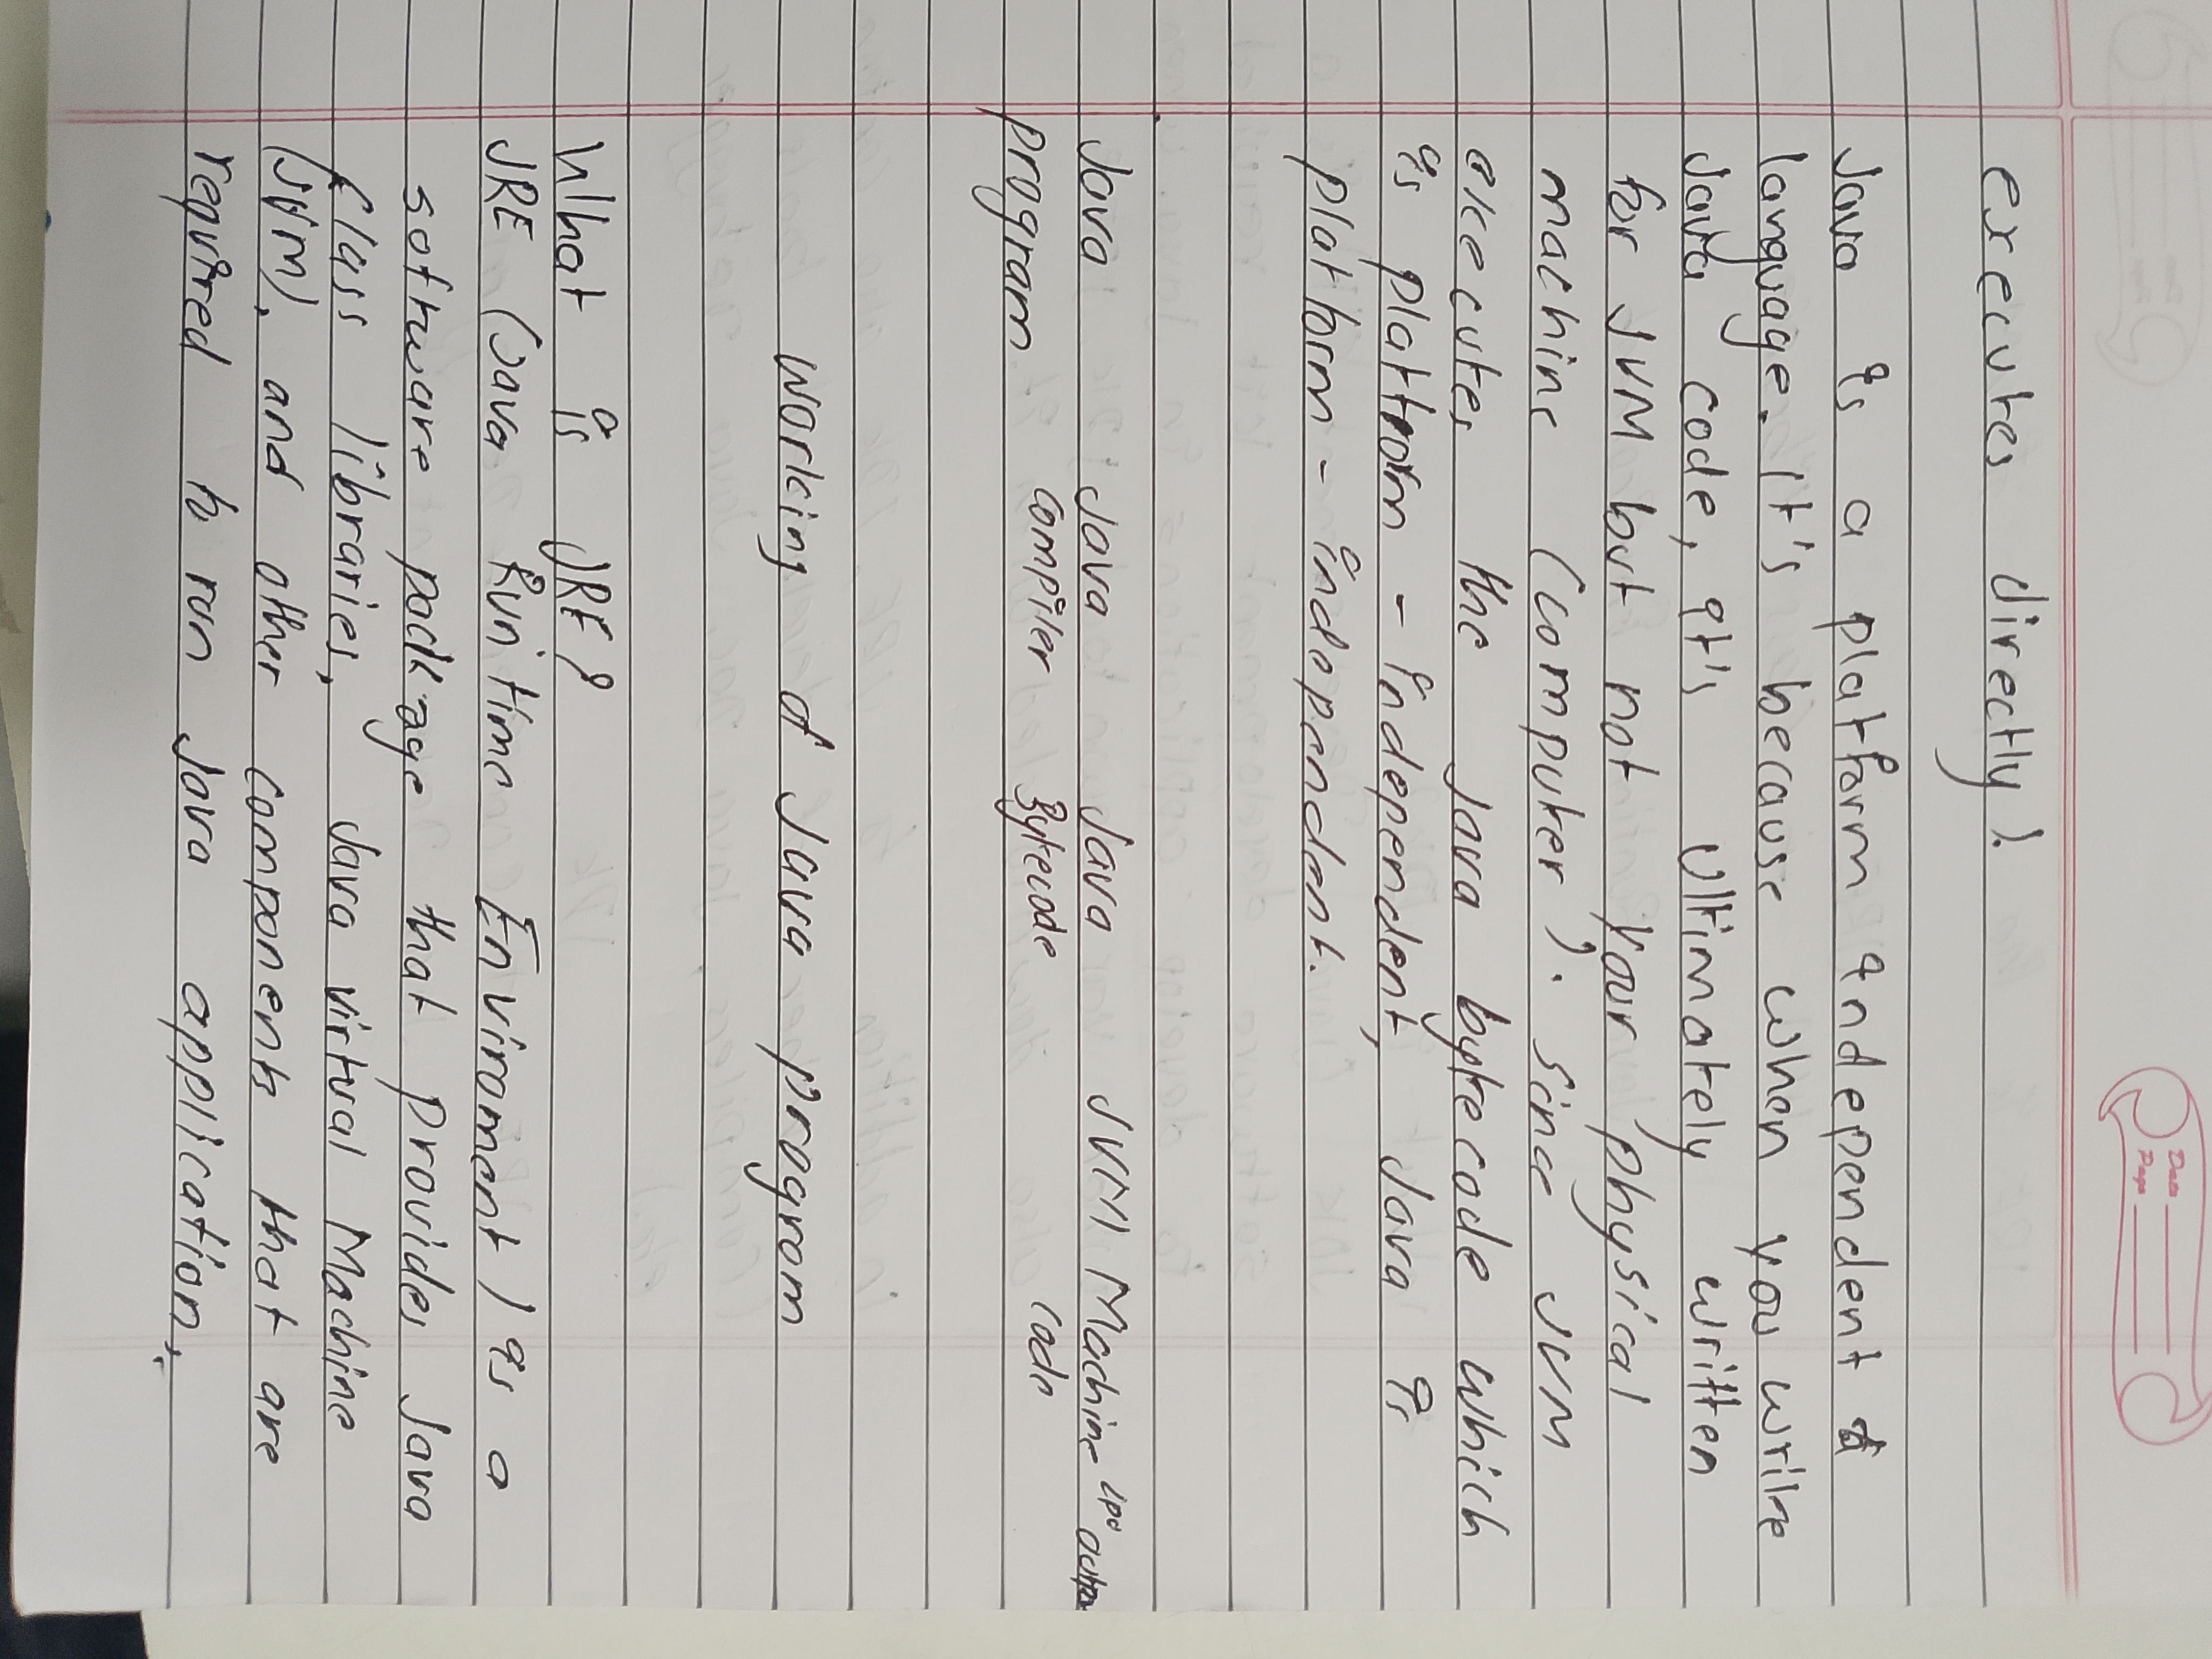 Date
Page
executes directly).
Java is a platform independent
language. It's because when you write
Java code, it's ultimately written
for JVM but not your physical
machine (computer). Since JVM
executes the Java bytecode which
is platform - independent, Java is
platform - independent.
Java Java Java JVM Machine CPU output
program compiler Bytecode Code
Working of Java program
What is JRE?
JRE (Java Runtime Enviroment) is a
software package that provides Java
class libraries, Java virtual Machine
(JVM), and other components that are
required to run Java application.